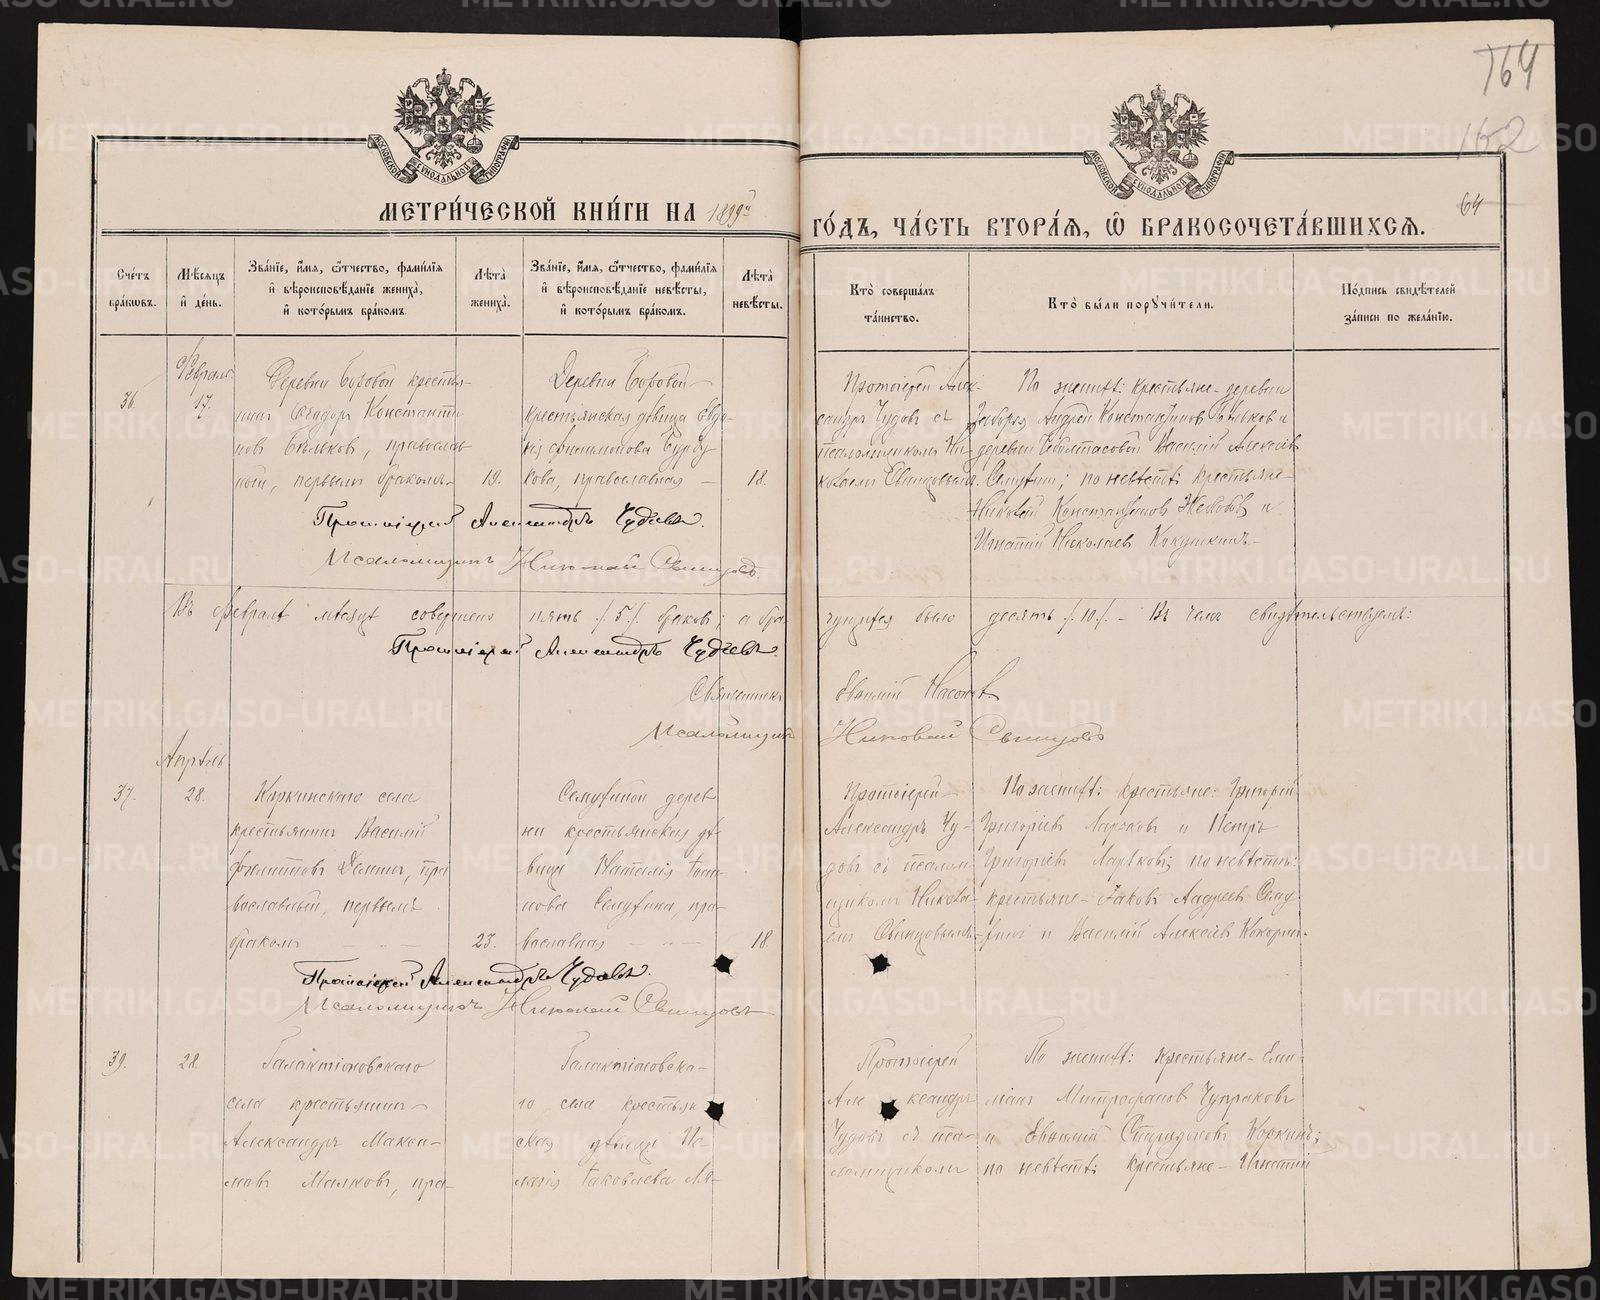 764
162
64
МОСКОВСКОЙ СѴНОДАЛЬНОЙ ТИПОГРАФІИ
МОСКОВСКОЙ СѴНОДАЛЬНОЙ ТИПОГРАФІИ
МЕТРИ́ЧЕСКОЙ КНИ́ГИ НА 1899й
ГО́ДЪ, ЧА́СТЬ ВТОРА́Я, Ѡ БРАКОСОЧЕТА́ВШИХСЯ.
Сче́тъ бра́кѡвъ.
Мѣ́сяцъ и҆ де́нь.
Зва́нїе, и҆́мя, ѻ҆́тчество, фами́лїя и҆ вѣроисповѣ́данїе жениха̀, и҆ кото́рымъ бра́комъ.
Лѣта̀ жениха̀.
Зва́нїе, и҆́мя, ѻ҆́тчество, фами́лїя и҆ вѣроисповѣ́данїе невѣ́сты, и҆ кото́рымъ бра́комъ.
Лѣта̀ невѣ́сты.
Кто̀ соверша́лъ та́инство.
Кто̀ бы́ли порꙋчи́тели.
По́дпись свидѣ́телей за́писи по жела́нїю.
Февраль
36.
17.
Деревни Боровой крестья-
нинъ Ѳеодоръ Константи
новъ Бѣльковъ, православ
ный, первымъ бракомъ
19.
Деревни Боровой
крестьянская дѣвица Евдо-
кія Филимонова
кова, православная
18.
Протоіерей Алек-
сандръ Чудовъ съ
псаломщикомъ Ни-
колаемъ Свинцовымъ.
По женихѣ: крестьяне деревни
Андрей Константиновъ Бѣльковъ и
деревни Василій Алексѣевъ
Семутинъ; по невѣстѣ: крестьяне
Константиновъ и
Игнатій Николаевъ Кокушкинъ
Протоіерей Александръ Чудовъ.
Псаломщикъ Николай Свинцовъ
Въ февралѣ мѣсяцѣ совершено пять /5/ браковъ; а бра
чущихся было десять /10/ – Въ чемъ свидѣтельствуемъ:
Протоіерей Александръ Чудовъ.
Священникъ Евѳимій Насоновъ
Псаломщикъ Николай Свинцовъ
Апрѣль
37.
28.
Коркинскаго села
крестьянинъ Василій
Филипповъ Деминъ, пра
вославный, первымъ
бракомъ
23.
Семутиной дерев
ни крестьянская дѣ
вица Наталія Іоан
нова Семутина, пра-
вославная
18.
Протоіерей
Александръ Чу-
довъ съ псалом
щикомъ Никола
емъ Свинцовымъ
По женихѣ: крестьяне: Григорій
Григоріевъ и Петръ
Григоріевъ по невѣстѣ:
крестьяне Іаковъ Андреевъ Сему
тинъ и Василій Алексѣевъ Кокоринъ.
Протоіерей Александръ Чудовъ.
Псаломщикъ Николай Свинцовъ
39.
28
Галактіоновскаго
села крестьянинъ
Александръ Макси-
мовъ Малковъ, пра-
Галактіоновска-
го села крестьян
ская дѣвица Пе
лагія Іаковлева
Протоіерей
Александръ
Чудовъ съ пса-
ломщикомъ
По женихѣ: крестьяне Еми-
ліанъ Митрофановъ Чупраковъ
и Евѳимій Спиридоновъ Коркинъ;
по невѣстѣ: крестьяне Игнатій
METRIKI.GASO-URAL.RU